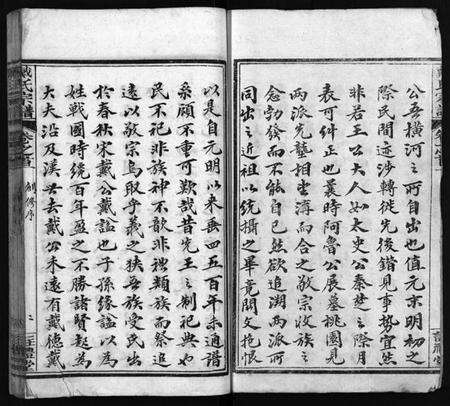 公吾橫河之所自出也值元末明初之
際民間遷涉轉徙先後錯見事勢宜然
非若王公大人如太史公秦楚之際月
表可件正也曩時阿魯公展墓桃園見
兩派先塋相望溝而合之敬宗收族之
念勃發而不能自已然欲追溯兩派所
同出之近祖以統攝之畢竟闕文抱恨
以是自元明以來垂四五百年未通譜
系顧不重可歎哉昔先王之制祀典也
民不祀非族神不歆非類類族而祭追
遠以敬宗烏取乎義之狹吾族受民出
於春秋宋戴公戴謚也子孫緣謚以為
姓戰國時纔百年盈之不勝諸賢起為
大夫沿及漢世去戴公未遠有戴德戴
戴氏宗譜
卷之首
創修序
二